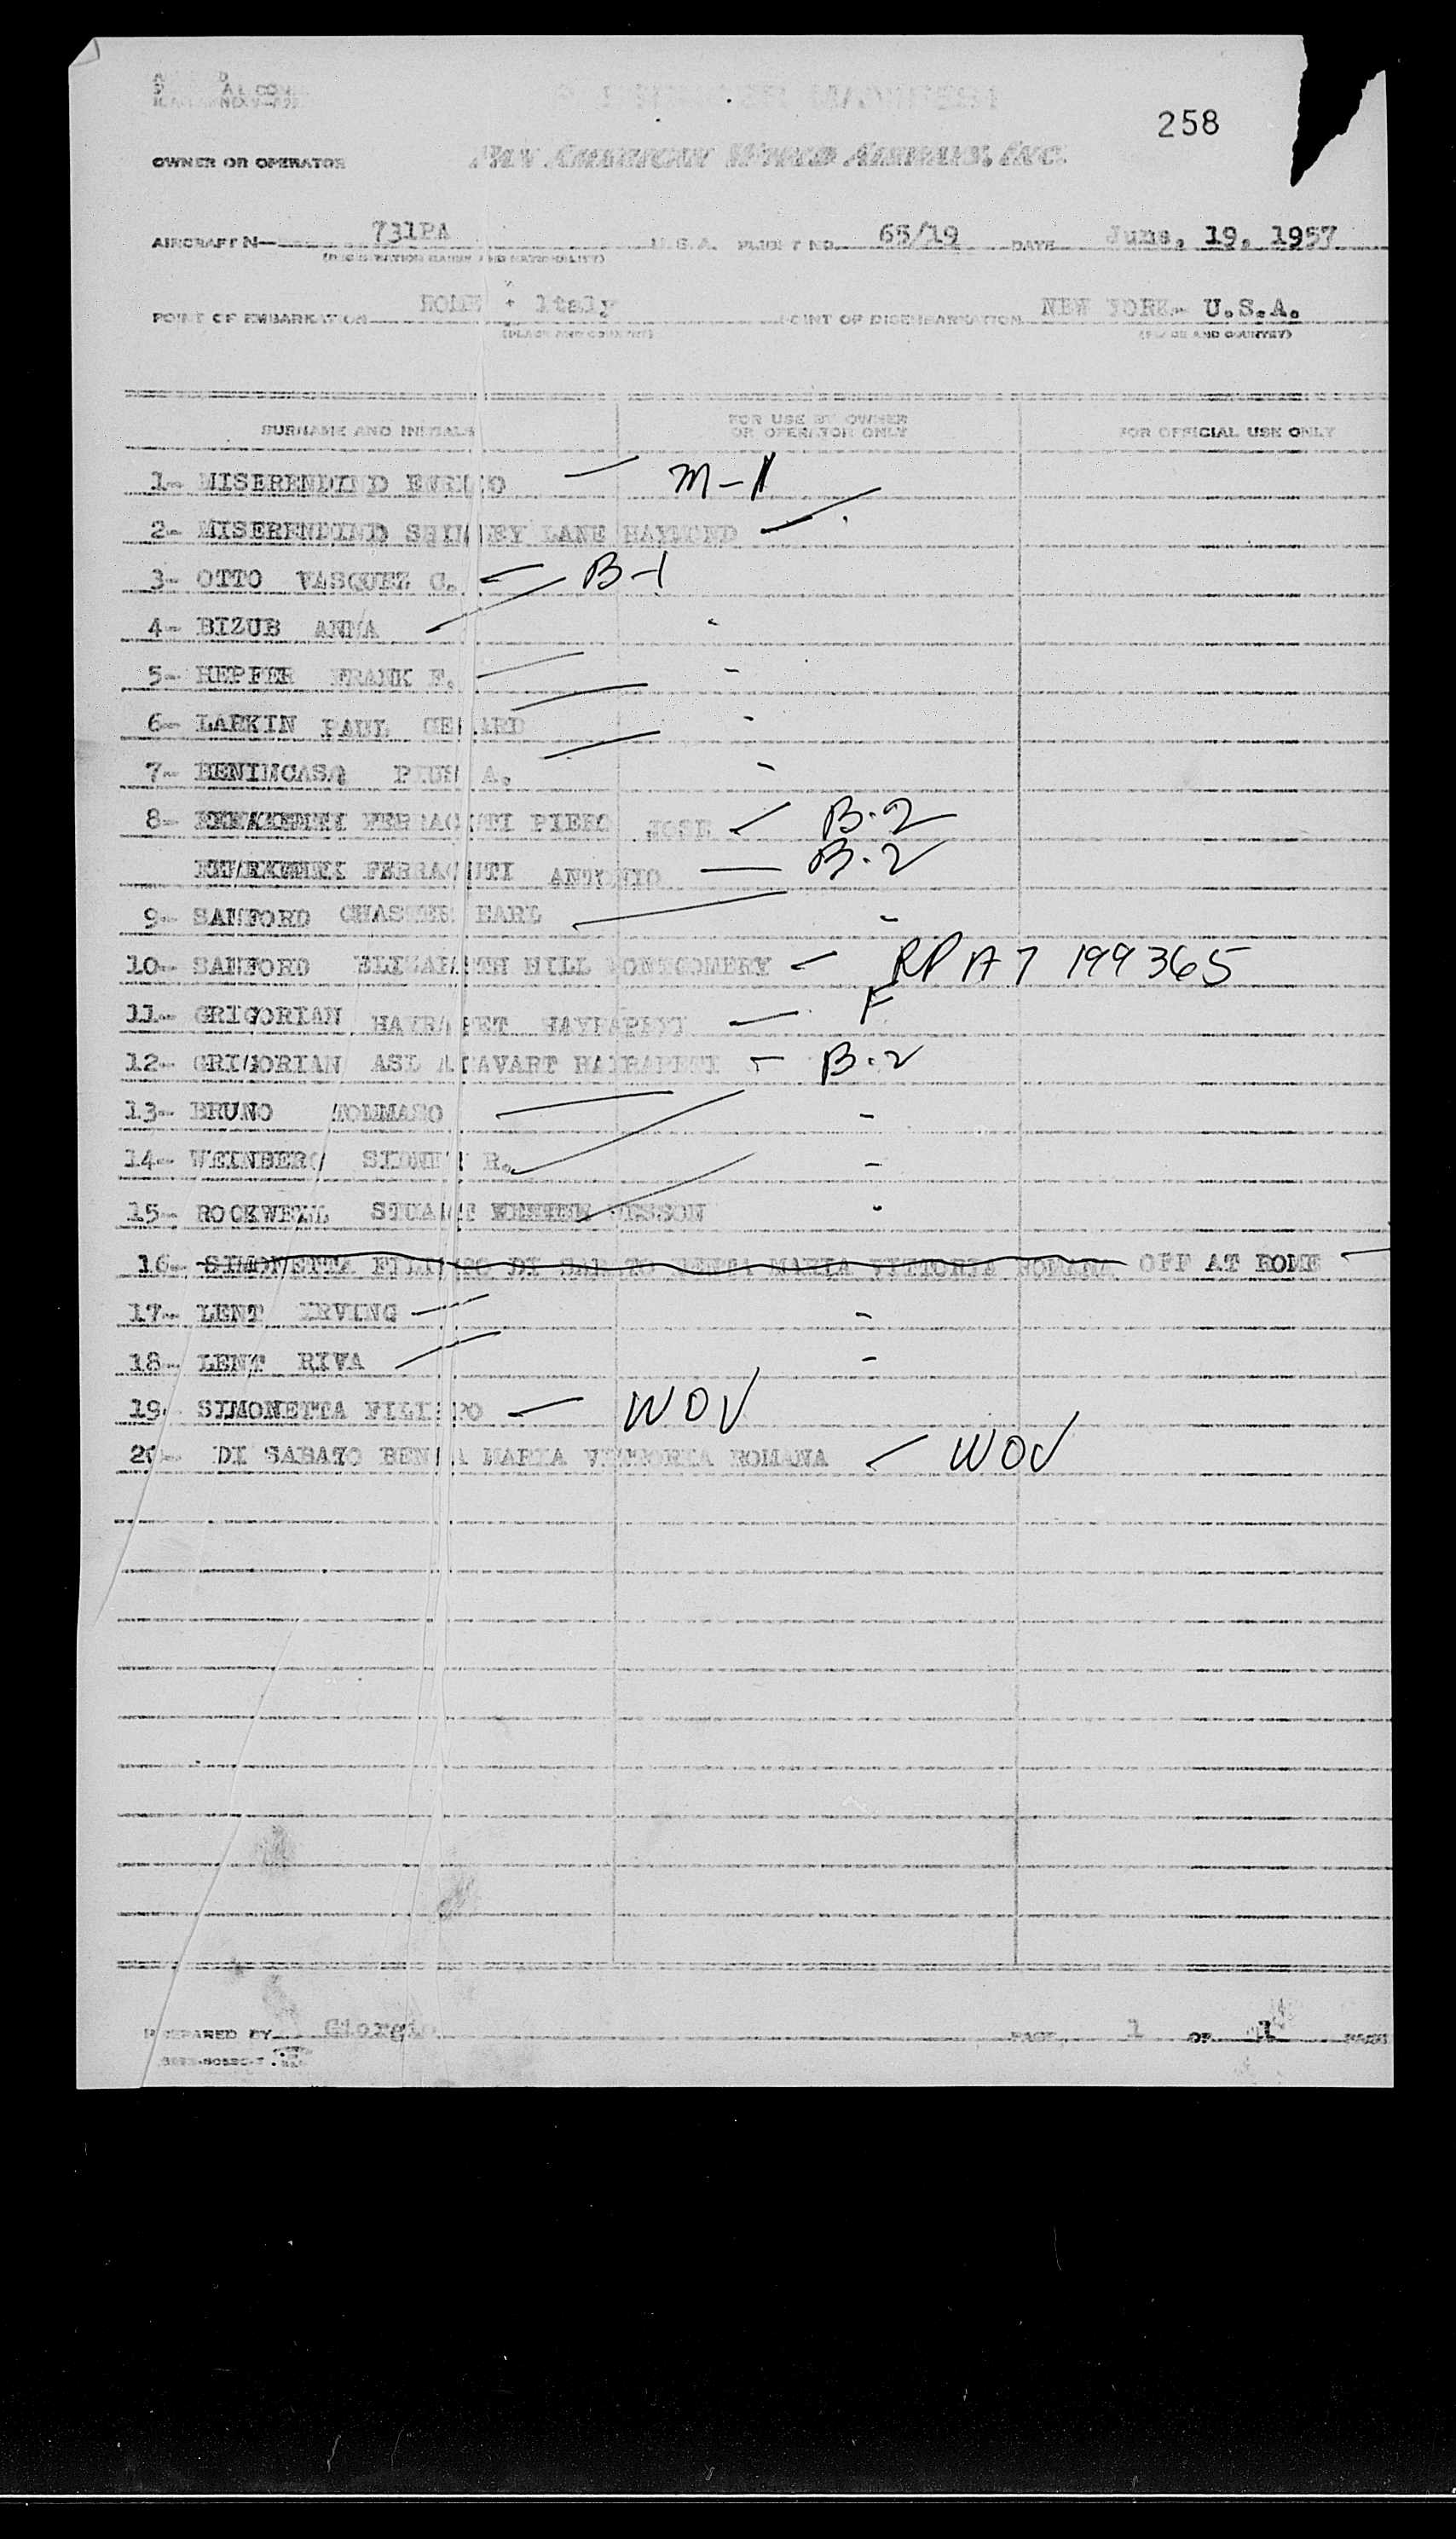 258
OWNER OR OPERATOR
AIRCRAFT N— 731PA U.S.A. FLIGHT NO. 65/19 DATE June, 19, 1957
(REGISTRATION MARKS AND NATIONALITY)
POINT OF EMBARKATION ROME Italy POINT OF DISEMBARKATION NEW YORK - U.S.A.
(PLACE AND COUNTRY) (PLACE AND COUNTRY)
SURNAME AND INITIALS FOR USE BY OWNER OR OPERATOR ONLY FOR OFFICIAL USE ONLY
1- MISERENDIND M-1
2- MISERENDIND LANE
3- OTTO VASQUEZ C. B-1
4- BIZUB ANNA
5- HEPFER FRANK F.
6- LARKIN PAUL GERARD
7- BENINCASA A.
8- FERRACUTI PIERO JOSE B-2
FERRACUTI ANTONIO B-2
9- SANFORD EARL
10- SANFORD HILL MONTGOMERY RP A7 199365
11- GRIGORIAN F
12- GRIGORIAN ASL B-2
13- BRUNO TOMMASO
14- WEINBERG SIDNEY R.
15- ROCKWELL STUART WESSON
16- SIMONETTA FILIPPO DI SABATO MARIA VITTORIA ROMANA OFF AT ROME
17- LENT IRVING
18- LENT RIVA
19- SIMONETTA FILIPPO WOV
20- DI SABATO MARIA VITTORIA ROMANA WOV
PREPARED BY Giorgio PAGE 1 OF 1 PAGES